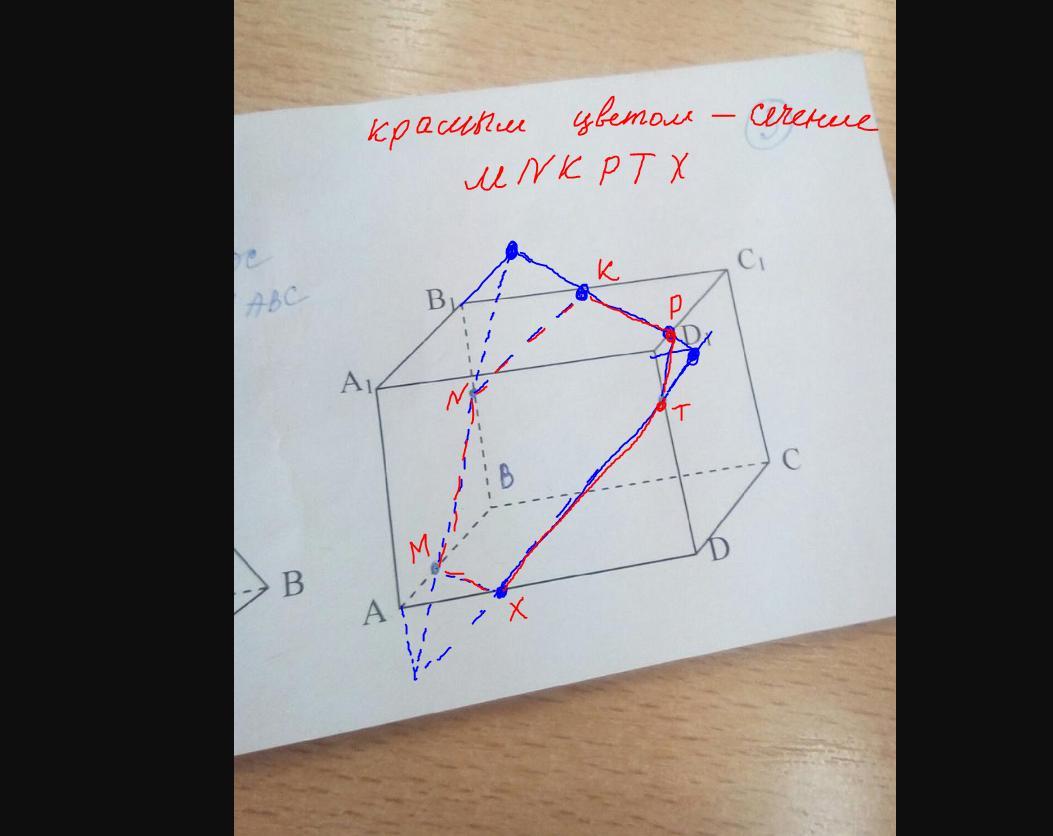 красным цветом — сечение
MNKPTX
ABC
K
C₁
B₁
P
D₁
A₁
N
T
B
C
M
D
B
A
X